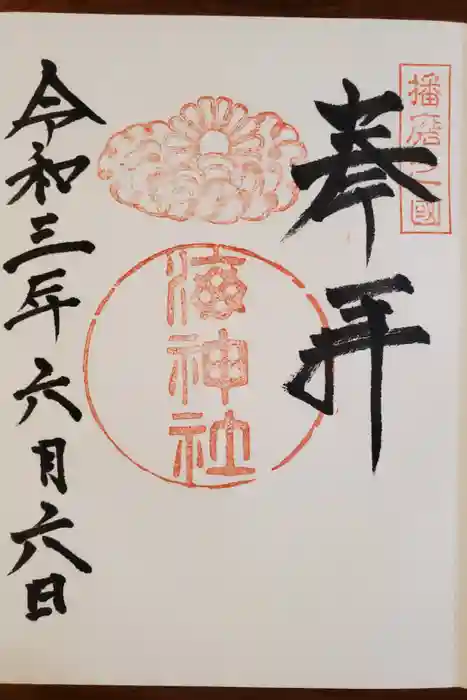 播磨之國
奉拝
海神社
令和三年六月六日